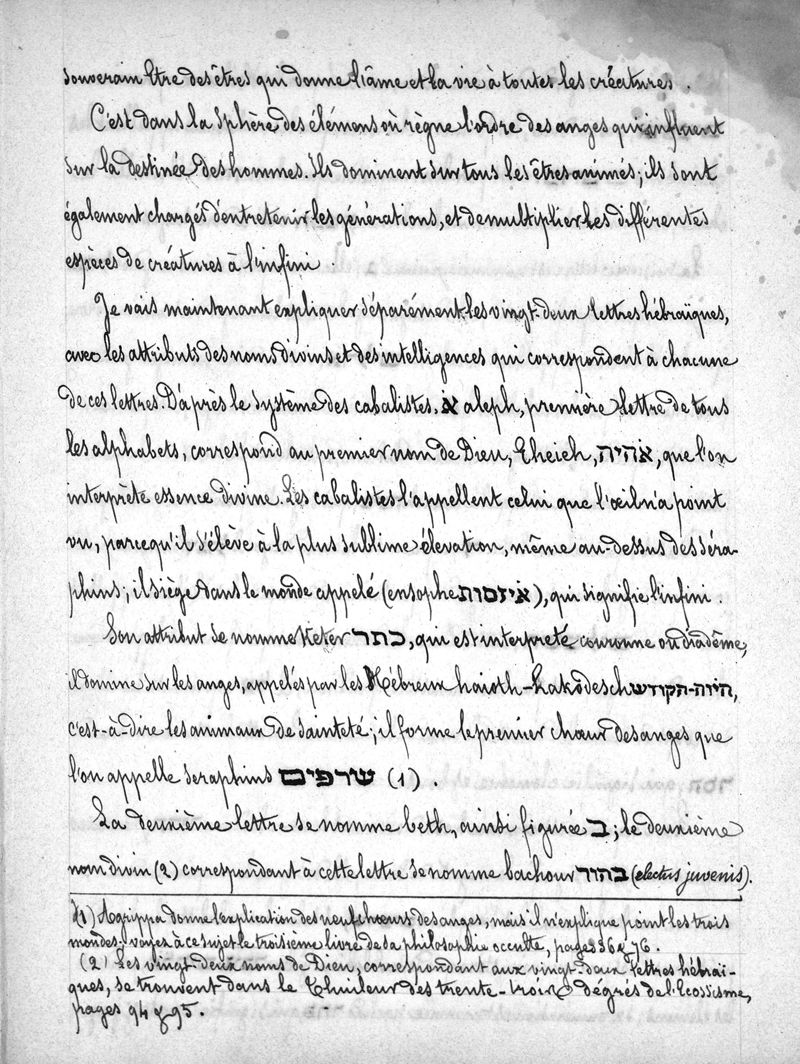 souverain Être des êtres qui donne l'âme et la vie à toutes les créatures.
C'est dans la Sphère des élémens où règne l'ordre des anges qui influent
sur la destinée des hommes. Ils dominent sur tous les êtres animés; ils sont
également chargés d'entretenir les générations, et de multiplier les différentes
espèces de créatures à l'infini.
Je vais maintenant expliquer séparément les vingt-deux lettres hébraïques,
avec les attributs des noms divins et des intelligences qui correspondent à chacune
de ces lettres. D'après le système des cabalistes. א aleph, première lettre de tous
les alphabets, correspond au premier nom de Dieu, Eheieh, אהיה, que l'on
interprète essence divine. Les cabalistes l'appellent celui que l'œil n'a point
vu, parcequ'il s'élève à la plus sublime élevation, même au-dessus des séra-
phins; il siège dans le monde appelé (ensophe איזסות), qui signifie l'infini.
Son attribut se nomme Keter כתר, qui est interpreté couronne ou diadême,
il domine sur les anges, appelés par les Hébreux haioth-hakodesch חיוה-הקודש,
c'est-à-dire les animaux de sainteté; il forme le premier chœur des anges que
l'on appelle seraphins שרפים (1)
La deuxième lettre se nomme beth, ainsi figurée ב; le deuxième
nom divin (2) correspondant à cette lettre se nomme bachour בחור (electus juvenis).
(1) Agrippa donne l'explication des neuf chœurs des anges, mais il n'explique point les trois
mondes: voyez à ce sujet le troisième livre de sa philosophie occulte, pages 36 & 76.
(2) Les vingt-deux noms de Dieu, correspondant aux vingt-deux lettres hébraï-
ques, se trouvent dans le Thuileur des trente-trois dégrés de l'Ecossisme,
pages 94 & 95.